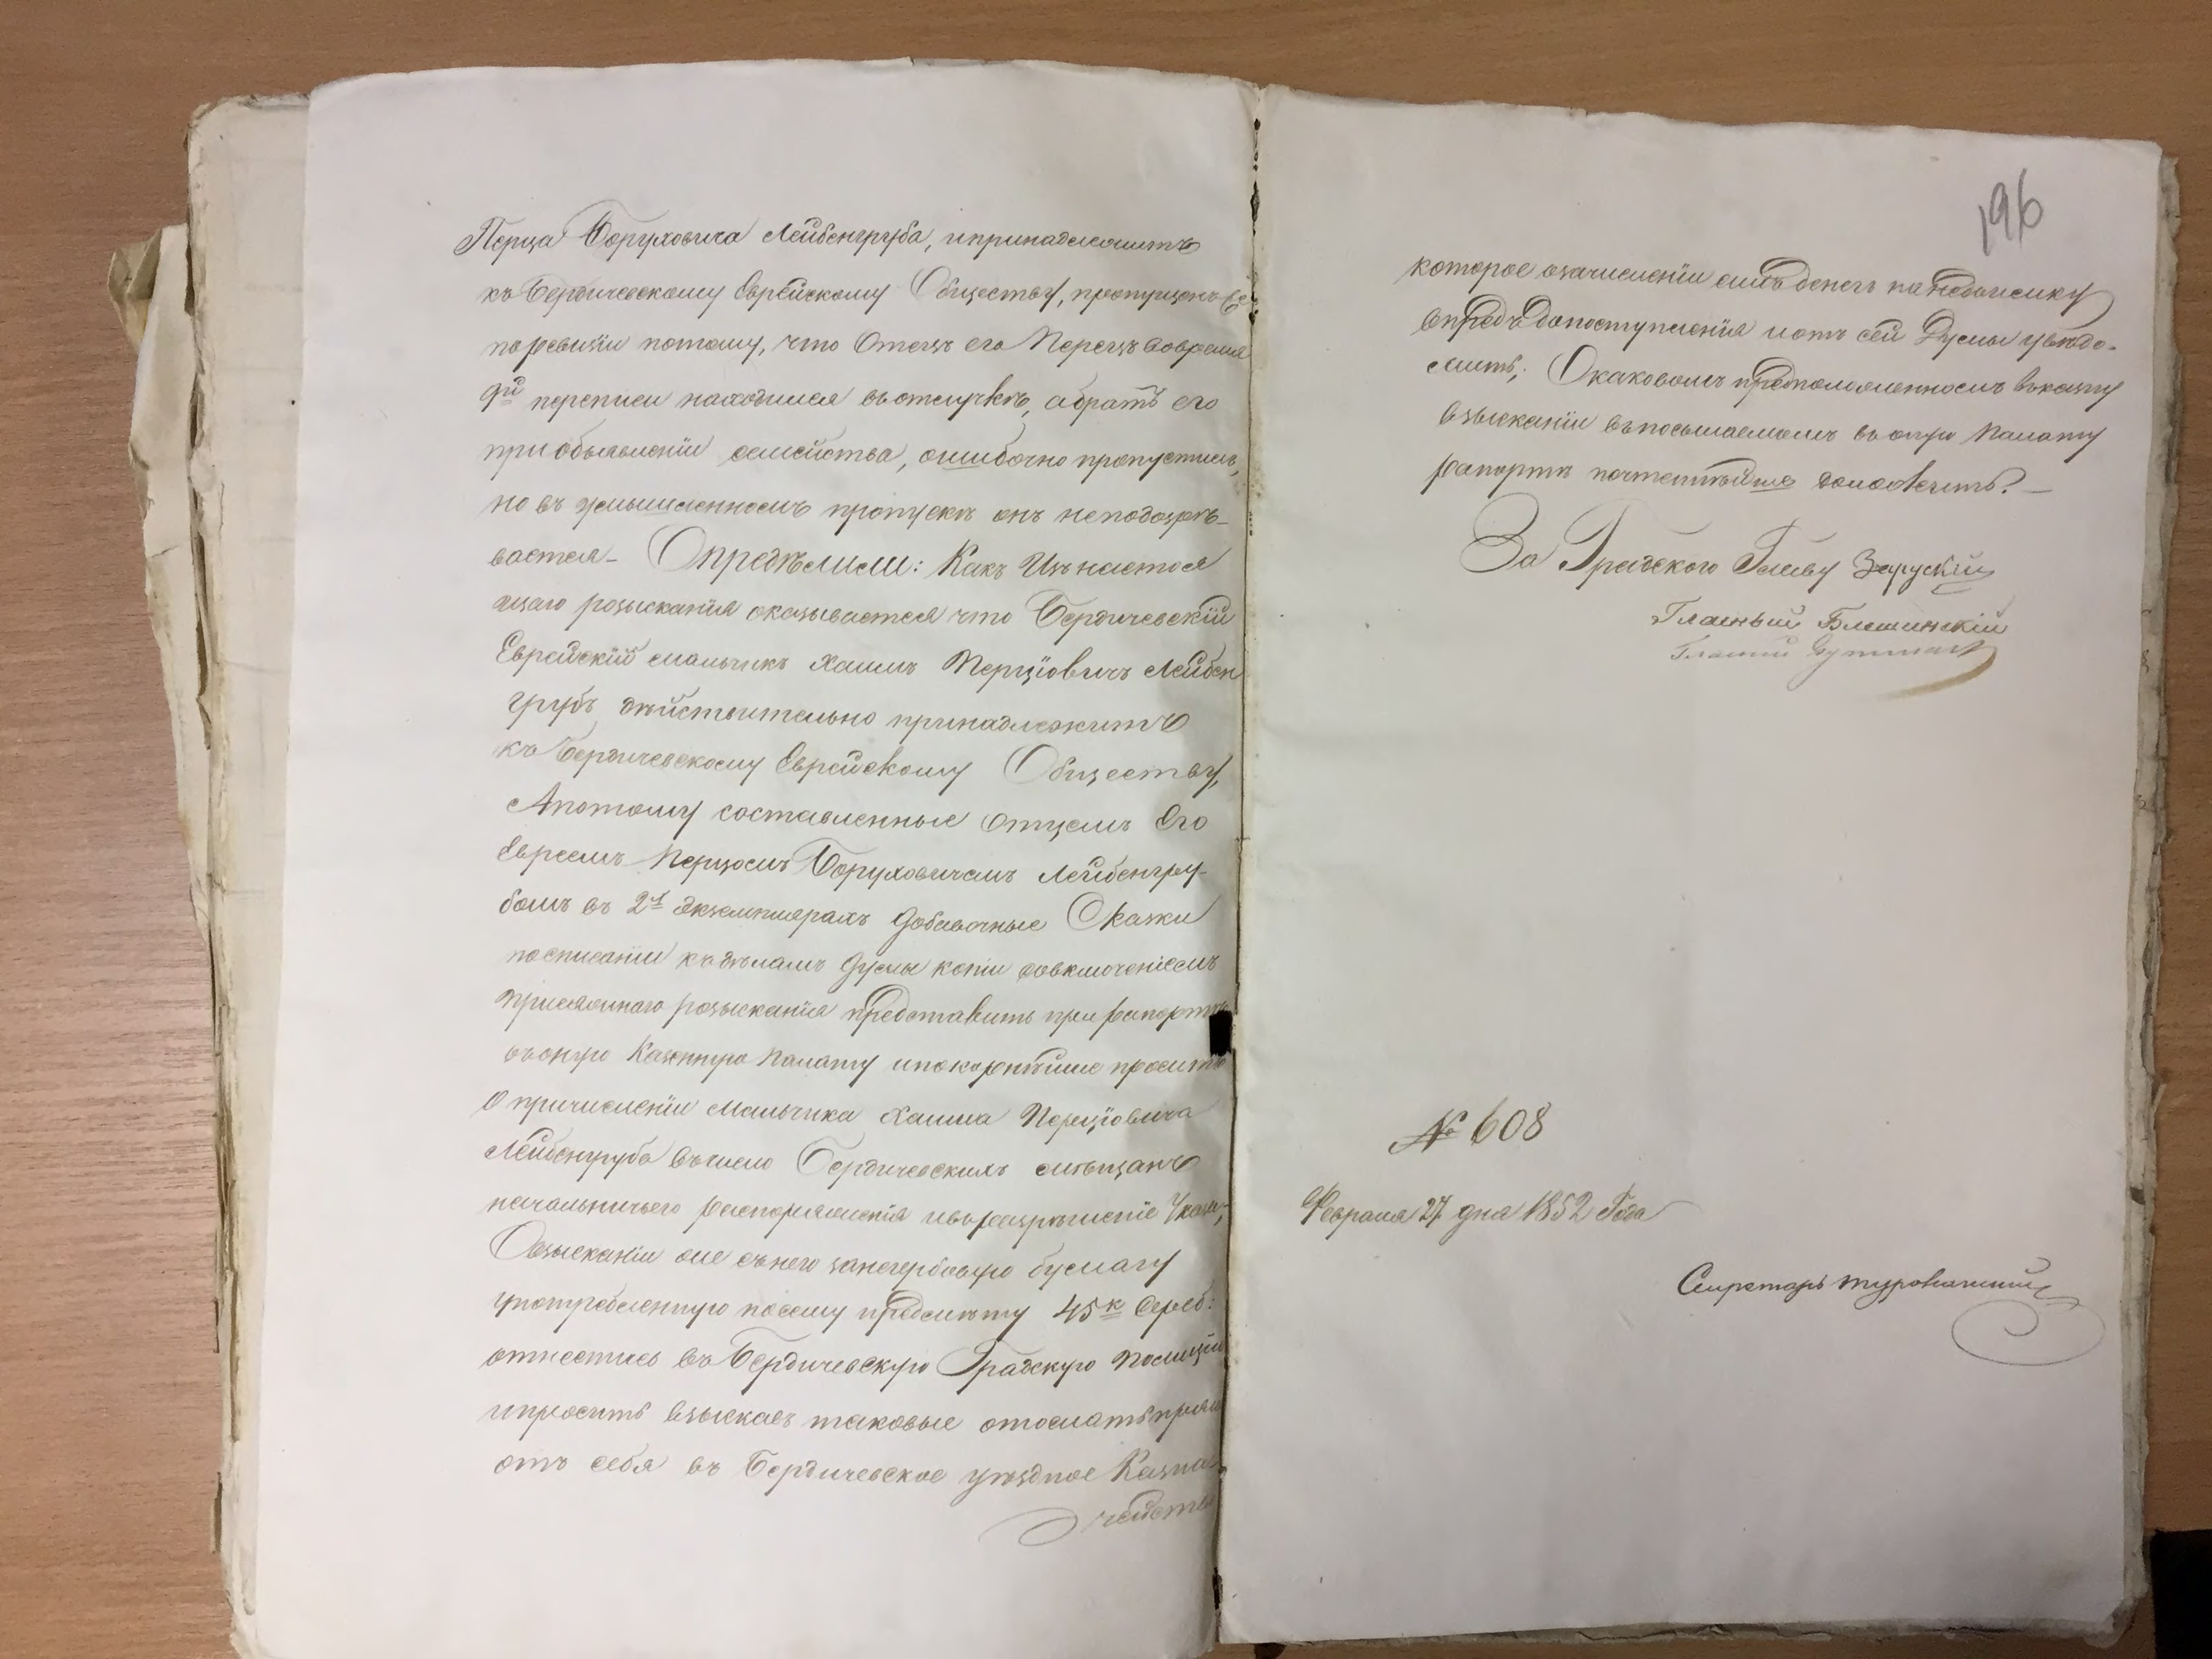 Перца Боруховича Лейбенгруба, ипринадлежитъ
къ Бердичевскому Еврейскому Обществу, пропущенъ
поревизіи потому, что Отецъ его Перецъ вовремя
9й переписи находился въотлучкѣ, абратъ его
приобъявленіи семейства, ошибочно пропустилъ,
но въ умышленномъ пропускѣ онъ неподозрѣ-
вается— Опредѣлили: Какъ Изънастоя
щаго розысканія оказывается что Бердичевскій
Еврейскій мальчикъ Хаимъ Перціовичъ Лейбен
грубъ дѣйствительно принадлежитъ
къ Бердичевскому Еврейскому Обществу,
Апотому составленные отцемъ Его
Евреемъ Перцомъ Боруховичемъ Лейбенгру-
бомъ въ 2х экземплярахъ добавочные Сказки
посписаніи къдѣламъ Думы копіи совключеніемъ
присяжнаго розысканія представить при рапортѣ
въоную Казенную Палату ипокорнѣйше просить
О причисленіи Мальчика Хаима Перціовича
Лейбенгруба въчисло Бердичевскихъ мѣщанъ
начальничьего распоряженія ивъразрѣшеніе Указа;
Овзысканіи же сънего загербовую бумагу
употребленную посему предмету 45к Сереб:
отнестись въ Бердичевскую Градскую Полицію
ипросить взыскавъ таковые отослать прямо
отъ себя въ Бердичевское уѣздное Казна-
чейство
196
которое озачисленіи симъ денегъ понедоимку
впредь допоступленія иотъ сей Думы увѣдо-
мить; Окаковомъ предположенномъ въказну
взысканіи въпосылаемомъ въоную Палату
рапортѣ почтеннѣйше доложить?—
За Градского Главу Заруский
Гласный Блешинскій
Гласный
№ 608
Февраля 27 дня 1852 Года
Секретарь